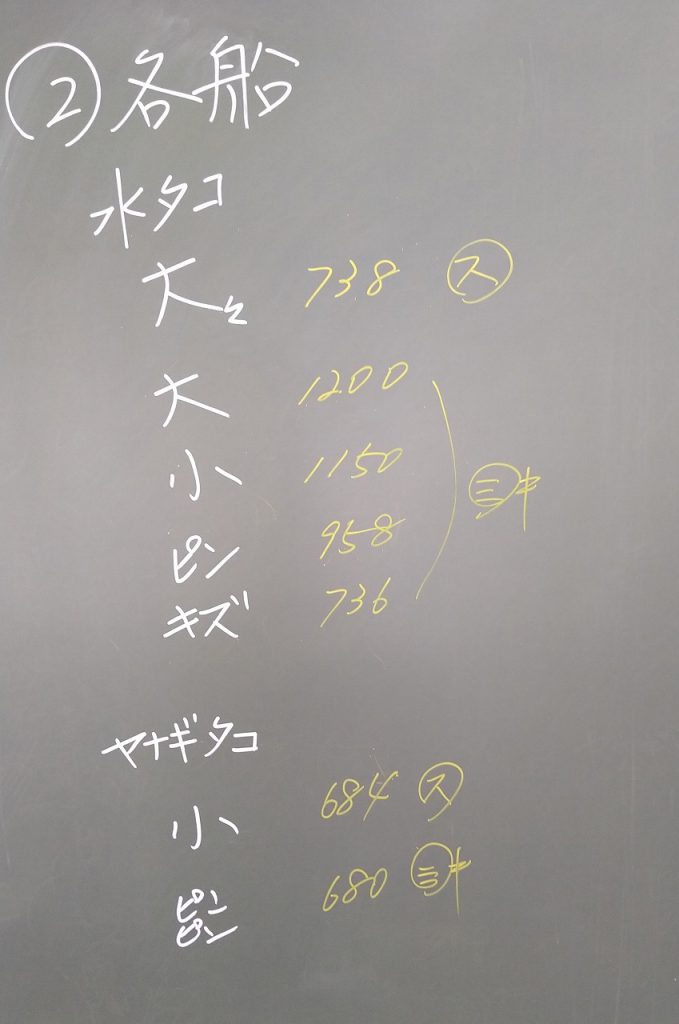 ② 各船
水タコ
大々 738 ㋜
大 1200
小 1150
ピン 958
キズ 736
ヤナギタコ
小 684 ㋜
ピンピン 680